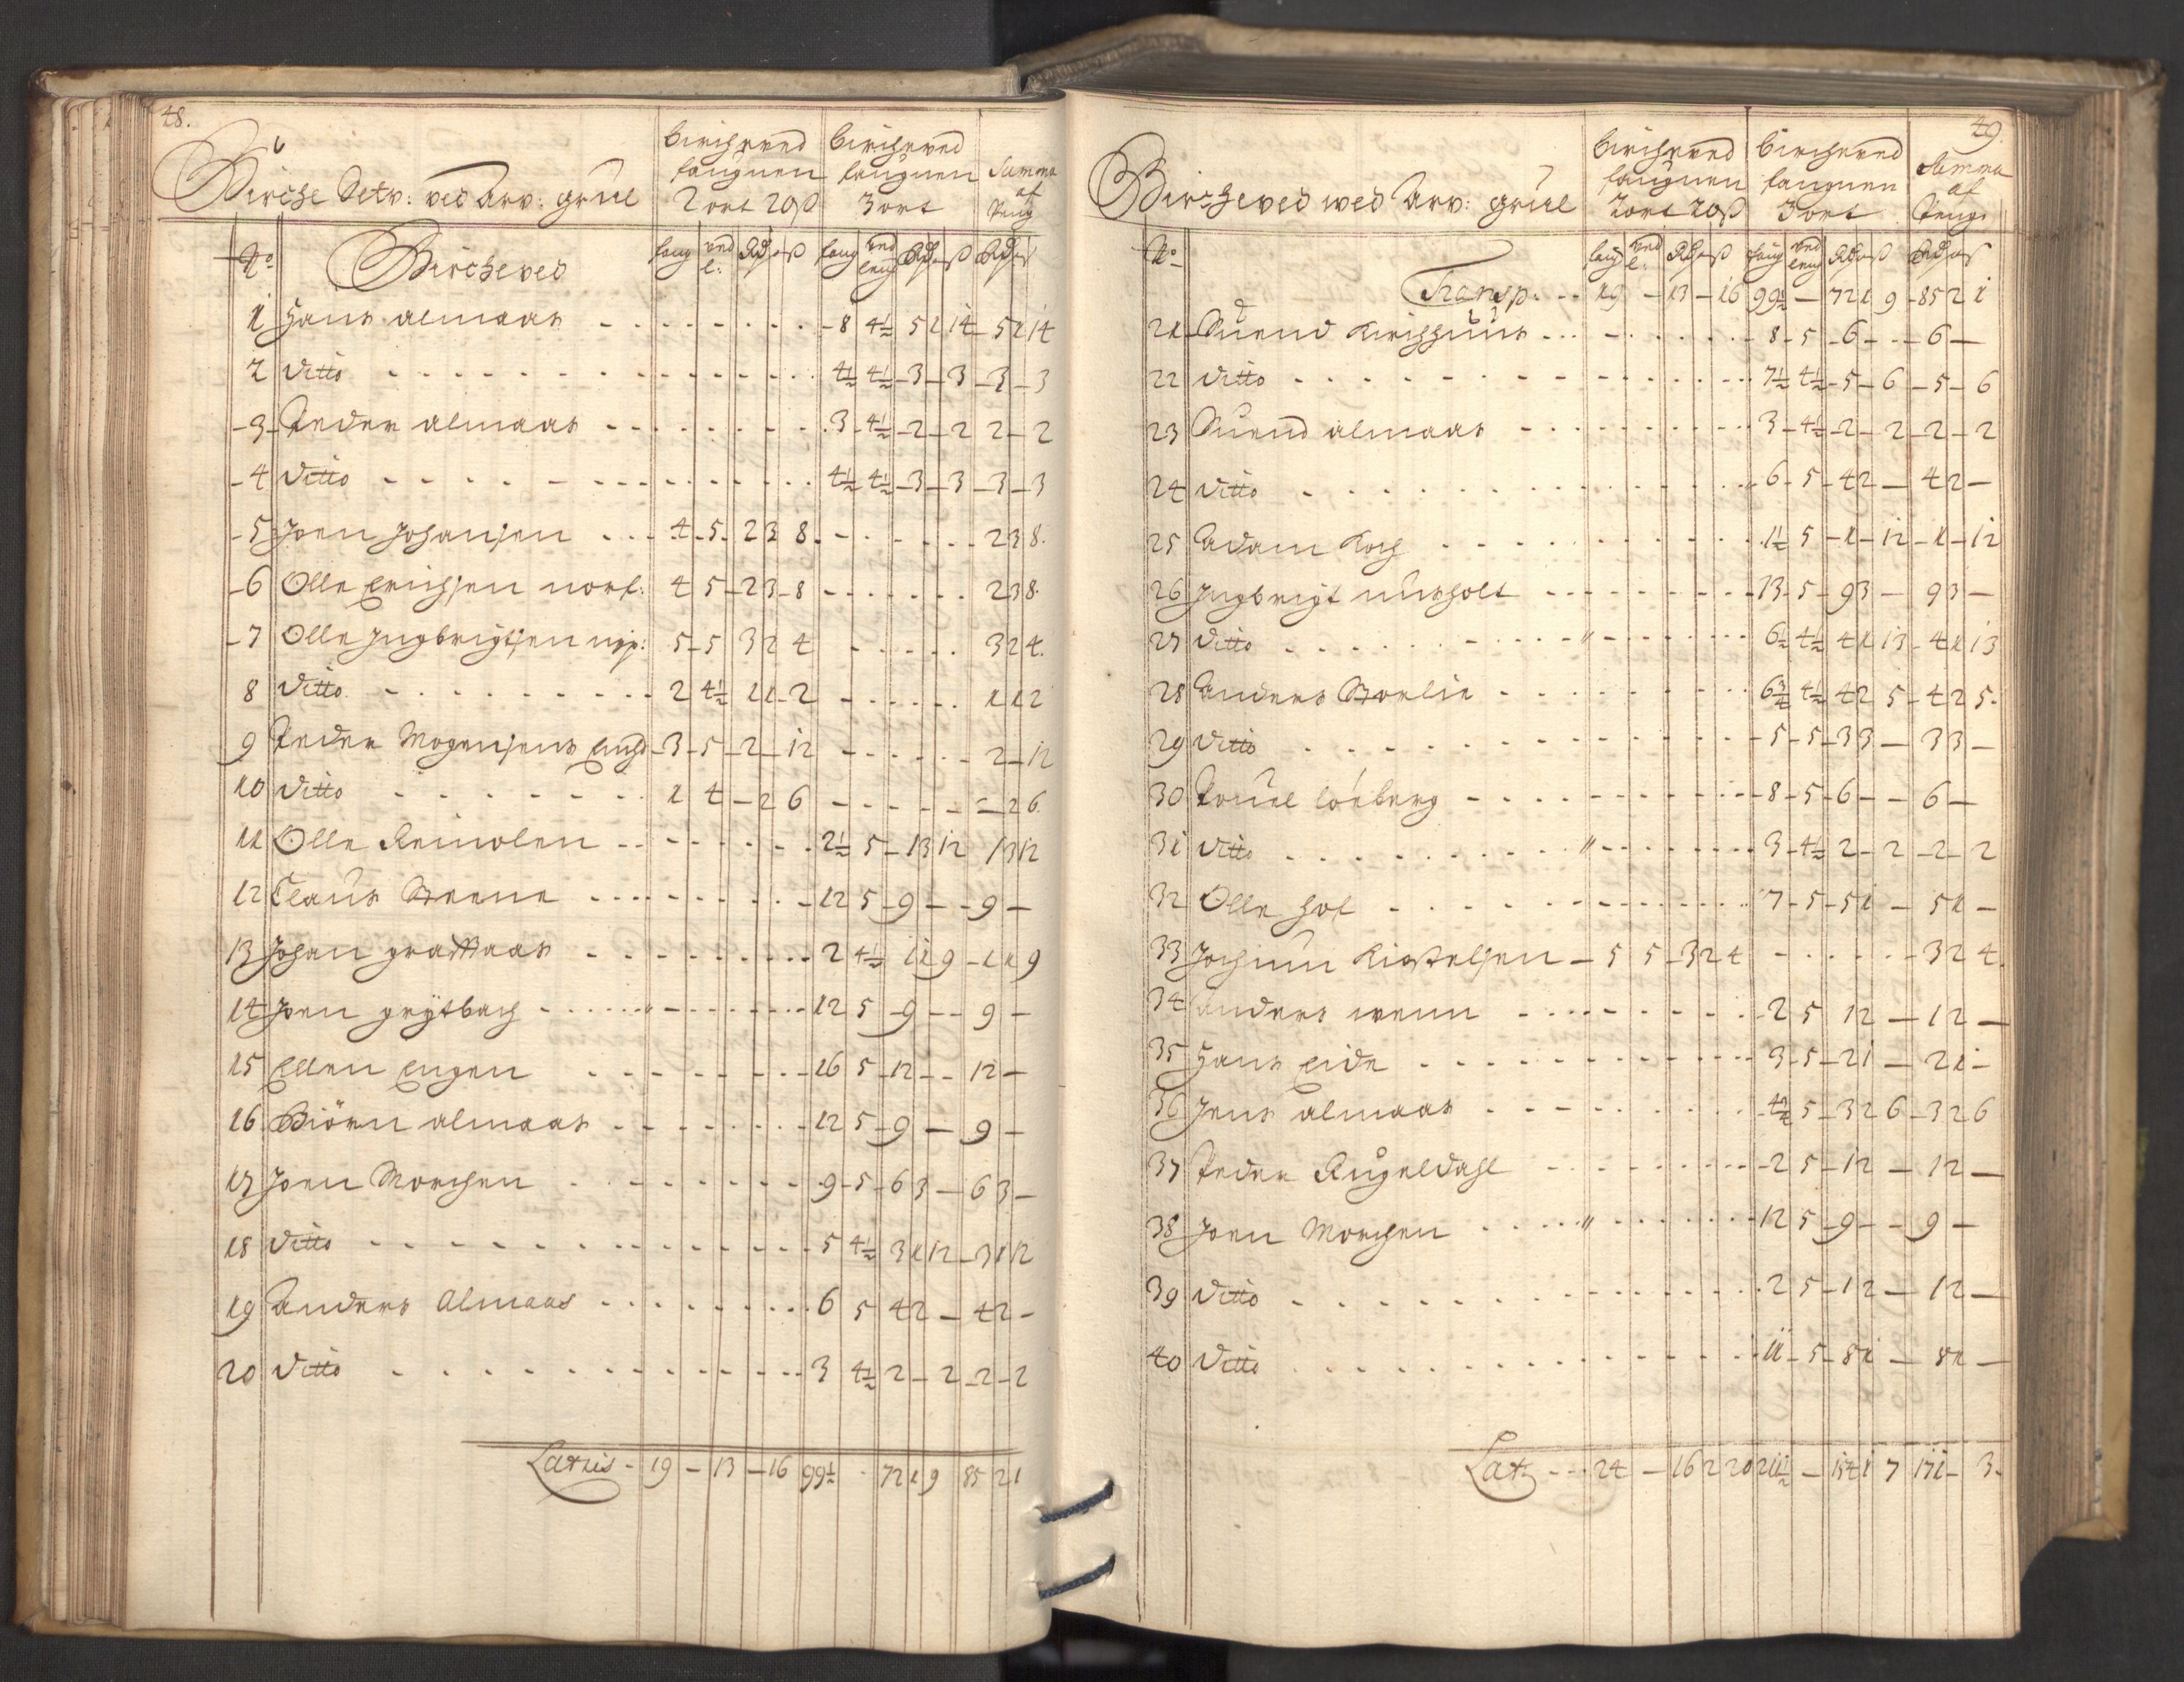 48.
Birche Setv: ved Arv: grue
bircheved faugnen 2 ort 20 ß
bircheved faugnen 3 ort
Summa af Peng
No Bircheved faug ved l: Rd o ß faug ved leng Rd o ß Rd o ß
1 Hans Almaas - - - 8 4½ 5 1 14 5 1 14
2 ditto - - - 4½ 4½ - 3 - 3 - 3 - 3
3 Peder Almaas - - - 3 - 4½ - 2 - 2 2 - 2
4 ditto - - - 4½ 4½ - 3 - 3 - 3 - 3
5 Joen Johansen - - - 4 - 5 - 2 3 8 - - - 2 3 8.
6 Olle Erichsen norf: 4 5 - 2 3 - 8 - - - 2 3 8.
7 Olle Ingbrigtsen 5 - 5 3 2 4 - - - 3 2 4.
8 ditto - - - 2 4½ 1 1 - 2 - - - 1 1 2
9 Peder Mogensens - 3 - 5 - 2 - 12 - - - 2 - 12
10 ditto - - - 1 4 - 2 6 - - - 2 6.
11 Olle Reinolen - - - 2½ 5 - 1 3 12 1 3 12
12 Claus Steene - - - 12 5 - 9 - - 9 -
13 Johan graattaas - - - 2 4½ 1 1 9 - 1 1 9
14 Joen grytbach - - - 12 5 - 9 - - 9 -
15 Ellen Engen - - - 16 5 - 12 - - 12 -
16 Biörn Almaas - - - 12 5 - 9 - 9 -
17 Joen Morchen - - - 9 - 5 - 6 3 - 6 3 -
18 ditto - - - 5 4½ 3 1 12 - 3 1 12
19 Anders Almaas - - - 6 5 4 2 - 4 2 -
20 ditto - - - 3 4½ 2 - 2 - 2 - 2
Latus - 19 - 13 - 16 99½ - 72 1 9 85 2 1
49.
Bircheved wed Arv: grue
bircheved faugnen 2 ort 20 ß
bircheved faugnen 3 ort
Summa af Peng:
No faug ved l: Rd o ß faug ved leng Rd o ß Rd o ß
Transp. - - 19 - 13 - 16 99½ - 72 1 9 - 85 2 1
21 Suend Kirchhuus - - - 8 - 5 - 6 - - 6 -
22 ditto - - - 7½ 4½ - 5 - 6 - 5 - 6
23 Suend Almaas - - - 3 - 4½ - 2 - 2 - 2 - 2
24 ditto - - - 6 - 5 - 4 2 - 4 2 -
25 Adam Koch - - - 1½ 5 - 1 - 12 - 1 - 12
26 Ingbrigt - - - 13 - 5 - 9 3 - 9 3 -
27 ditto - - - 6½ 4½ 4 1 13 - 4 1 13
28 Anders Storlie - - - 6¾ 4½ 4 2 5 - 4 2 5.
29 ditto - - - 5 - 5 - 3 3 - 3 3 -
30 Pouel löeberg - - - 8 - 5 - 6 - - 6 -
31 ditto - - - 3 - 4½ 2 - 2 - 2 - 2
32 Olle hof - - - 7 - 5 - 5 1 - 5 1 -
33 Jochum Kiostelsen - 5 5 - 3 2 4 - - - 3 2 4.
34 Anders wenn - - - 2 5 1 2 - 1 2 -
35 Hans Eide - - - 3 - 5 - 2 1 - 2 1 -
36 Jens Almaas - - - 4¾ 5 - 3 2 6 - 3 2 6
37 Peder Rugeldahl - - - 2 5 - 1 2 - 1 2 -
38 Joen Morchen - - - 12 5 - 9 - - 9 -
39 ditto - - - 2 5 - 1 2 - 1 2 -
40 ditto - - - 11 - 5 - 8 1 - 8 1 -
Lat: - - 24 - 16 2 20 211½ - 154 1 7 171 - 3.